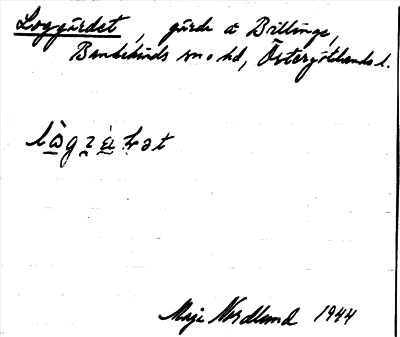 Loggärdet, gärde å Billinge,
Bankekinds sn o hd, Östergötlands l.
Maji Nordlund 1944